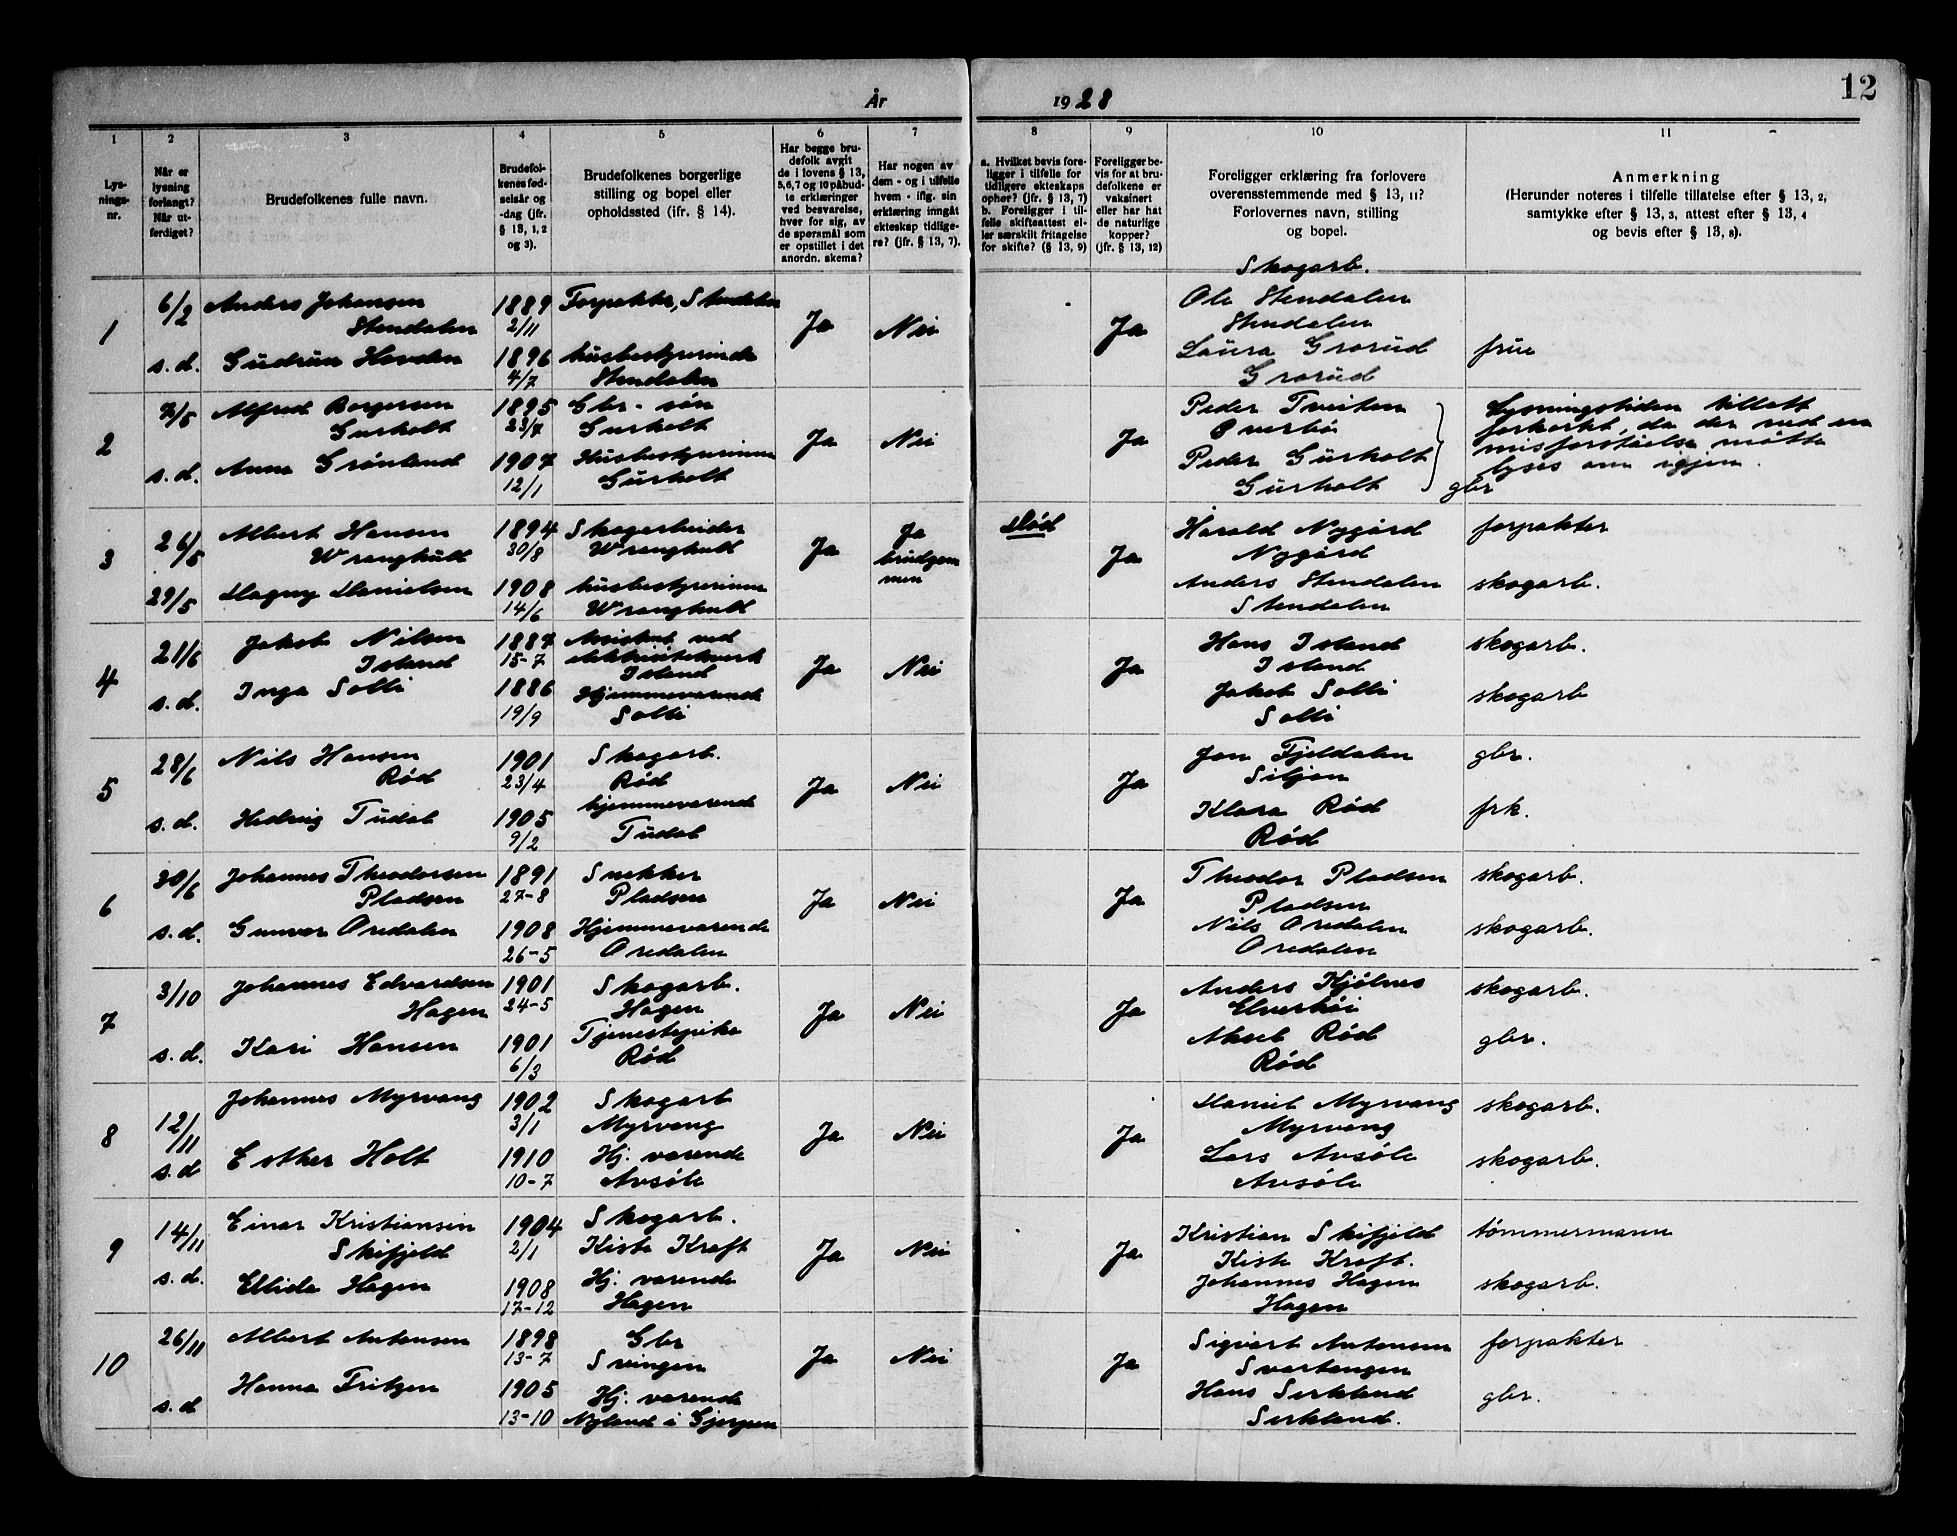 12
År 1928
1 2 3 4 5 6 7 8 9 10 11
Lys-
nings-
nr.
Når er
lysning
forlangt?
Når ut-
ferdiget?
Brudefolkenes fulle navn.
Brudefol-
kenes fød-
selsår og
-dag (jfr.
§ 13, 1, 2
og 3).
Brudefolkenes borgerlige
stilling og bopel eller
opholdssted (ifr. § 14).
Har begge bru-
defolk avgit
de i lovens § 13,
5,6,7 og 10 påbud-
te erklæringer
ved besvarelse,
hver for sig, av
de spørsmål som
er opstillet i det
anordn. skema?
Har nogen av
dem - og i tilfelle
hvem - iflg. sin
erklæring inngått
ekteskap tidlige-
re? (jfr. § 13, 7).
a. Hvilket bevis fore-
ligger i tilfelle for
tidligere ekteskaps
ophør? (jfr. § 13, 7)
b. Foreligger i til-
felle skifteattest el-
ler særskilt fritagelse
for skifte? (§ 13, 9)
Foreligger be-
vis for at bru-
defolkene er
vaksinert
eller har hat
de naturlige
kopper?
(jfr. § 13, 12)
Foreligger erklæring fra forlovere
overensstemmende med § 13, 11?
Forlovernes navn, stilling
og bopel.
Anmerkning
(Herunder noteres i tilfelle tillatelse efter § 13, 2,
samtykke efter § 13, 3, attest efter § 13, 4
og bevis efter § 13, 8).
1
6/2
s. d.
Anders Johansen
Stendalen
Gudrun Hovden
1889
2/11
1896
4/7
Forpakter, Stendalen
husbestyrerinde
Stendalen
Ja
Nei
Ja
Skogarb.
Ole Stendalen
Stendalen
Laura Grorud
Grorud
frue
2
7/5
s. d.
Alfred Borgersen
Gurholt
Anna Grønland
1895
23/7
1907
12/1
Gbr - søn
Gurholt
Husbestyrerinne
Gurholt
Ja
Nei
Ja
Peder Tveiten
Øverbø
Peder Gurholt
Gurholt
gbr
Lysningstiden tillatt
forkortet, da der ved en
misforståelse måtte
lyses om igjen.
3
26/5
29/5
Albert Hansen
Wranghult
Magny Danielsen
1894
30/8
1908
14/6
Skogarbeider
Wranghult
husbestyrerinne
Wranghult
Ja
Ja
brudgom
men
død
Ja
Harald Nygård
Nygård
Anders Stendalen
Stendalen
forpakter
skogarb.
4
21/6
s. d.
Jakob Nilsen
Island
Inga Solli
1887
15-7
1886
19/9
Assistent ved
elektrisitetsverk
Island
Hjemmeværende
Solli
Ja
Nei
Ja
Hans Island
Island
Jakob Solli
Solli
skogarb.
skogarb
5
28/6
s. d.
Nils Hansen
Rød
Hedvig Tudal
1901
23/4
1905
9/2
Skogarb.
Rød
hjemmeværende
Tudal
Ja
Nei
Ja
Jon Fjeldalen
Siljan
Klara Rød
Rød
gbr.
frk.
6
30/6
s. d.
Johannes Theodorsen
Pladsen
Gunvor Oredalen
1891
27-8
1908
26-5
Snekker
Pladsen
Hjemmeværende
Oredalen
Ja
Nei
Ja
Theodor Pladsen
Pladsen
Nils Oredalen
Oredalen
skogarb.
skogarb.
7
3/10
s. d.
Johannes Edvardsen
Hagen
Kari Hansen
1901
24-5
1901
6/3
Skogarb.
Hagen
Tjenestepike
Rød
Ja
Nei
Ja
Anders Kjølnes
Elverhøi
Aksel Rød
Rød
skogarb.
gbr.
8
12/11
s. d
Johannes Myrvang
Esther Holt
1902
3/1
1910
10-7
Skogarb
Myrvang
Hj. værende
Avsøle
Ja
Nei
Ja
Daniel Myrvang
Myrvang
Lars Avsøle
Avsøle
skogarb.
skogarb.
9
14/11
s. d.
Einar Kristiansen
Skifjeld
Ellida Hagen
1904
2/1
1908
17-12
Skogarb.
Kiste Kraft
Hj. værende
Hagen
Ja
Nei
Ja
Kristian Skifjeld
Kiste Kraft.
Johannes Hagen
Hagen
tømmermann
skogarb.
10
26/11
s. d
Albert Antonsen
Hanna Fritzen
1898
13-7
1905
13-10
Gbr
Svingen
Hj. værende
Nyland i Gjerpen
Ja
Nei
Ja
Sigvart Antonsen
Svartangen
Hans Serkland
Serkland.
forpakter
gbr.